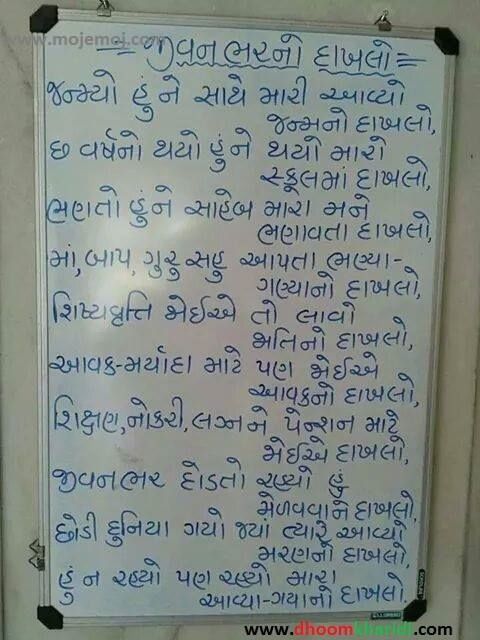 www.mojemoj.com
જીવનભરનો દાખલો
જન્મ્યો હું ને સાથે મારી આવ્યો
જન્મનો દાખલો,
છ વર્ષનો થયો હું ને થયો મારો
સ્કૂલમાં દાખલો,
ભણતો હું ને સાહેબ મારા મને
ભણાવતા દાખલો,
માં, બાપ, ગુરુ સહુ આપતા ભણ્યા-
ગણ્યાનો દાખલો,
શિષ્યવૃત્તિ જોઈએ તો લાવો
જાતિનો દાખલો,
આવક-મર્યાદા માટે પણ જોઈએ
આવકનો દાખલો,
શિક્ષણ, નોકરી, લગ્ન ને પેન્શન માટે
જોઈએ દાખલો,
જીવનભર દોડતો રહ્યો હું
મેળવવાને દાખલો,
છોડી દુનિયા ગયો જ્યાં ત્યારે આવ્યો
મરણનો દાખલો,
હું ન રહ્યો પણ રહ્યો મારા
આવ્યા-ગયાનો દાખલો.
www.dhoomkharidi.com